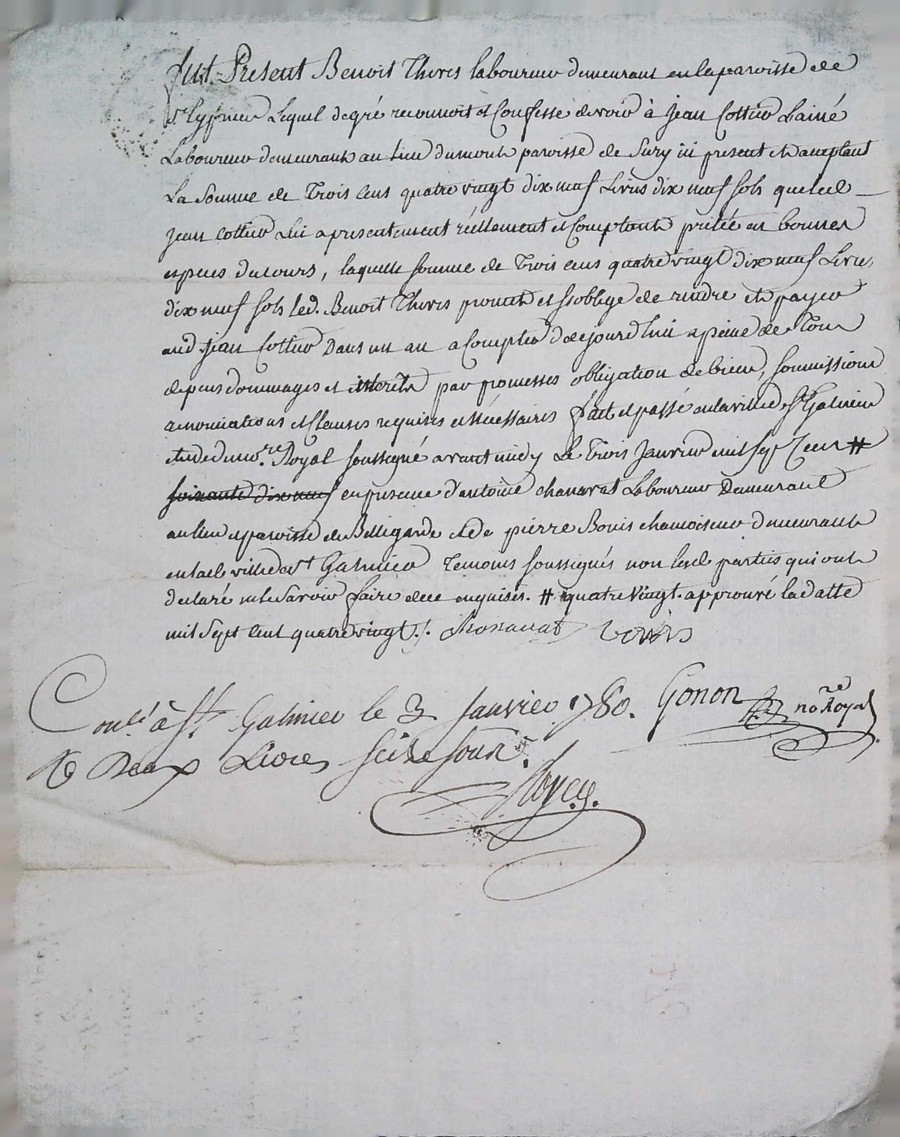 fut Present Benoit Thevés laboureur demeurant en la paroisse de
St Cyprien Lequel de gré reconnoit et Confesse devoir à Jean Cottier Lainé
Laboureur demeurant au lieu dumont paroisse de Sury ici present et acceptant
La Somme de Trois cens quatre vingt dix neuf Livres dix neuf sols que led
Jean Cottier Lui a presentement réellement et Comptant prétée en bonnes
especes du cours, laquelle somme de Trois cens quatre vingt dix neuf Livres
dix neuf sols led. Benoit Thevés promet et s'oblige de rendre et payer
aud Jean Cottier Dans un an a Compter de ce jourd'hui a peine de Tous
depens dommages et interêts par promesses obligation de biens, soumissions
renonciations et Clauses requises et Nécessaires fait et passé en la ville de St Galmier
étude du nore. Royal soussigné avant midy Le Trois Janvier mil sept Cent #
soixante dix neuf en presence d'antoine chanavat Laboureur Demeurant
au lieu et paroisse de Bellegarde et de pierre Bouis chamoiseur demeurant
en lad. ville de St Galmier Temoins soussignés non lesd parties qui ont
declaré ne le Savoir faire de ce enquises. # quatre Vingt. approuvé la datte
mil Sept Cent quatre vingt ./. Chanavat
Contlé. à St. Galmier le 3 Janvier 1780. Gonon no.re Royal
R Deux Livres